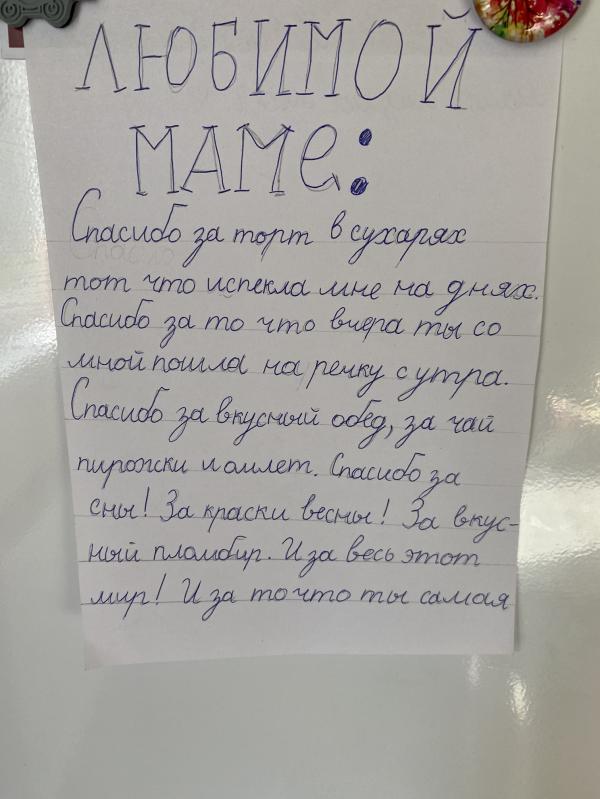 ЛЮБИМОЙ
МАМЕ:
Спасибо за торт в сухарях
тот что испекла мне на днях.
Спасибо за то что вчера ты со
мной пошла на речку с утра.
Спасибо за вкусный обед, за чай
пирожки и омлет. Спасибо за
сны! За краски весны! За вкус-
ный пломбир. И за весь этот
мир! И за то что ты самая